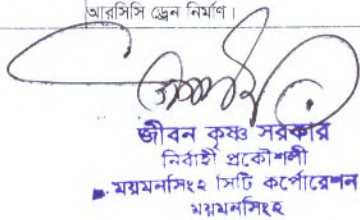 আরসিসি ড্রেন নির্মাণ।
জীবন কৃষ্ণ সরকার
নির্বাহী প্রকৌশলী
ময়মনসিংহ সিটি কর্পোরেশন
ময়মনসিংহ